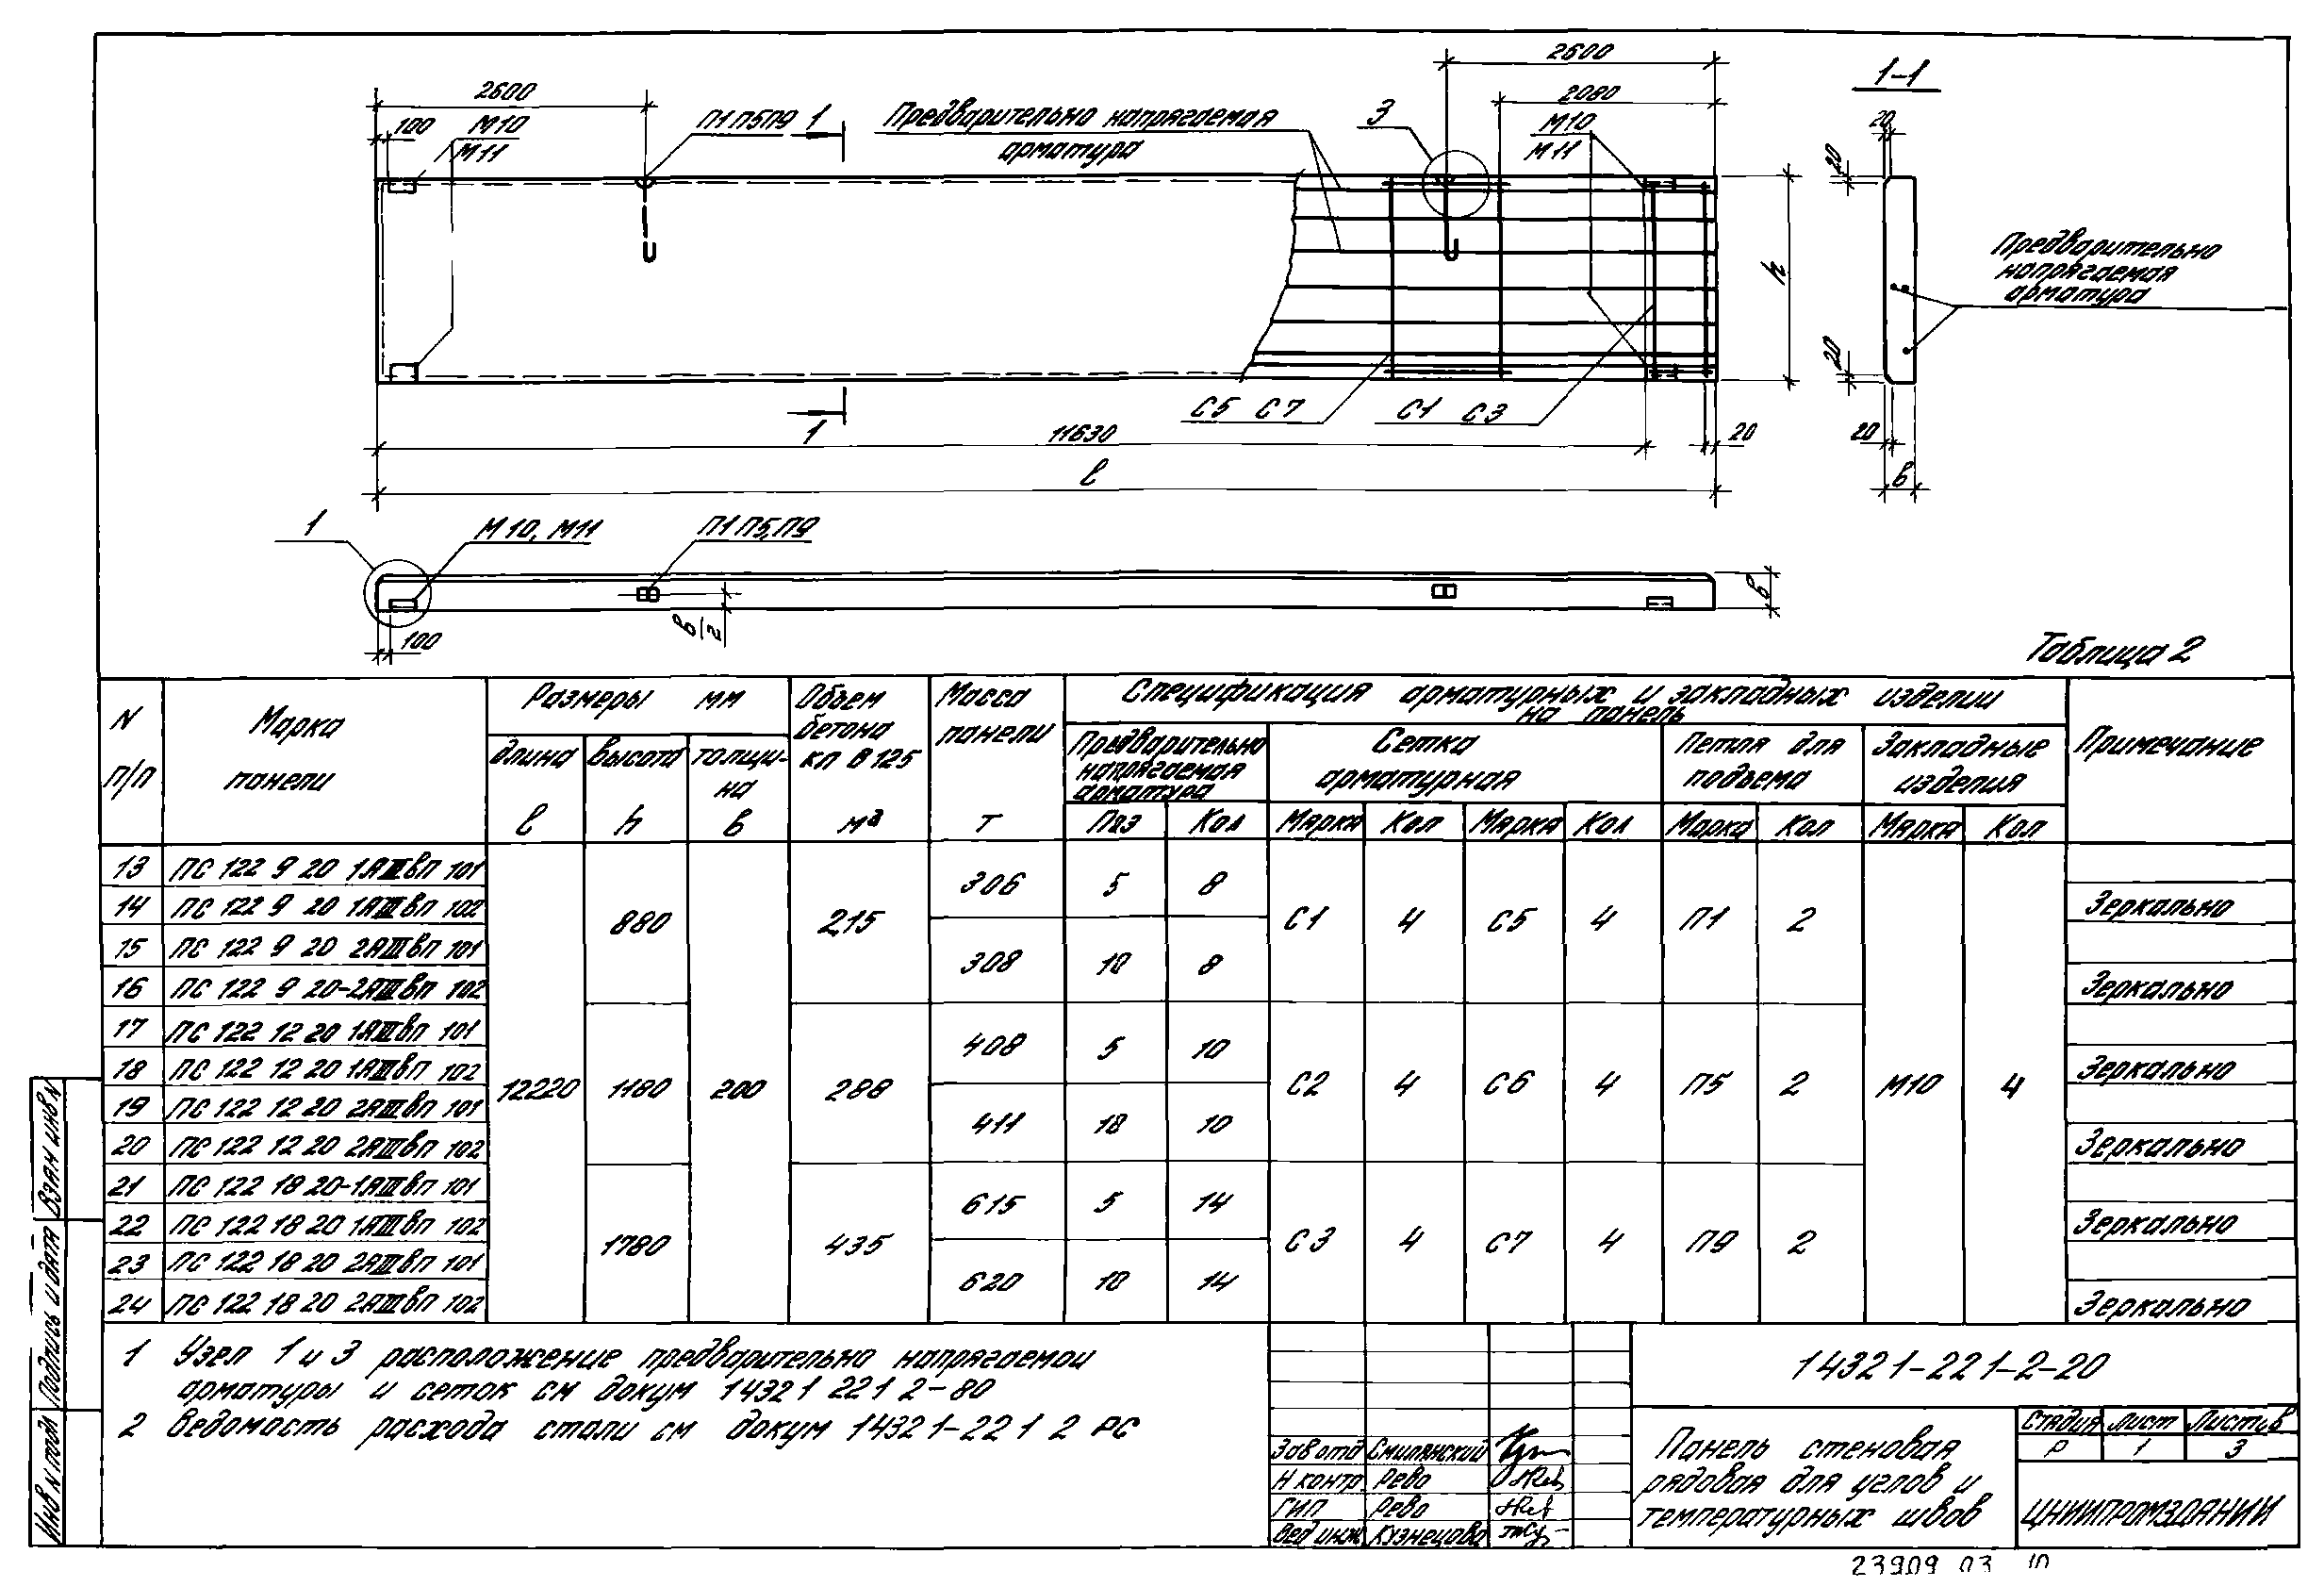 2600
2600
1-1
2080
100
М10
М11
П1 П5 П9
1
Предварительно напрягаемая
арматура
3
М10
М11
20
20
h
Предварительно
напрягаемая
арматура
20
С5 С7
С1 С3
1
11630
20
20
в
ℓ
1
М10, М11
П1 П5, П9
в/2
в
100
Таблица 2
N п/п
Марка панели
Размеры мм
длина ℓ
высота h
толщина в
Объем бетона кл В 125 м3
Масса панели т
Спецификация арматурных и закладных изделий
на панель
Предварительно напрягаемая арматура
Сетка арматурная
Петля для подъема
Закладные изделия
Примечание
Поз Кол Марка Кол Марка Кол Марка Кол Марка Кол
13 ПС 122 9 20 1АШвп 101
14 ПС 122 9 20 1АШвп 102 Зеркально
15 ПС 122 9 20 2АШвп 101
16 ПС 122 9 20-2АШвп 102 Зеркально
880 215 306 5 8 С1 4 С5 4 П1 2
308 10 8
17 ПС 122 12 20 1АШвп 101
18 ПС 122 12 20 1АШвп 102 Зеркально
19 ПС 122 12 20 2АШвп 101
20 ПС 122 12 20 2АШвп 102 Зеркально
12220 1180 200 288 408 5 10 С2 4 С6 4 П5 2 М10 4
411 10 10
21 ПС 122 18 20-1АШвп 101
22 ПС 122 18 20 1АШвп 102 Зеркально
23 ПС 122 18 20 2АШвп 101
24 ПС 122 18 20 2АШвп 102 Зеркально
1780 435 615 5 14 С3 4 С7 4 П9 2
620 10 14
1 Узел 1 и 3 расположение предварительно напрягаемой
арматуры и сеток см докум 1432 1 22 1 2-80
2 Ведомость расхода стали см докум 1432 1-22 1 2 РС
1432 1-22 1-2-20
Зав отд Смилянский
Н контр. Рево
ГИП Рево
Вед инж Кузнецова
Панель стеновая
рядовая для углов и
температурных швов
Стадия Лист Листов
Р 1 3
ЦНИИПРОМЗДАНИЙ
Взам инв N
Подпись и дата
Инв N подл
23909 03 10